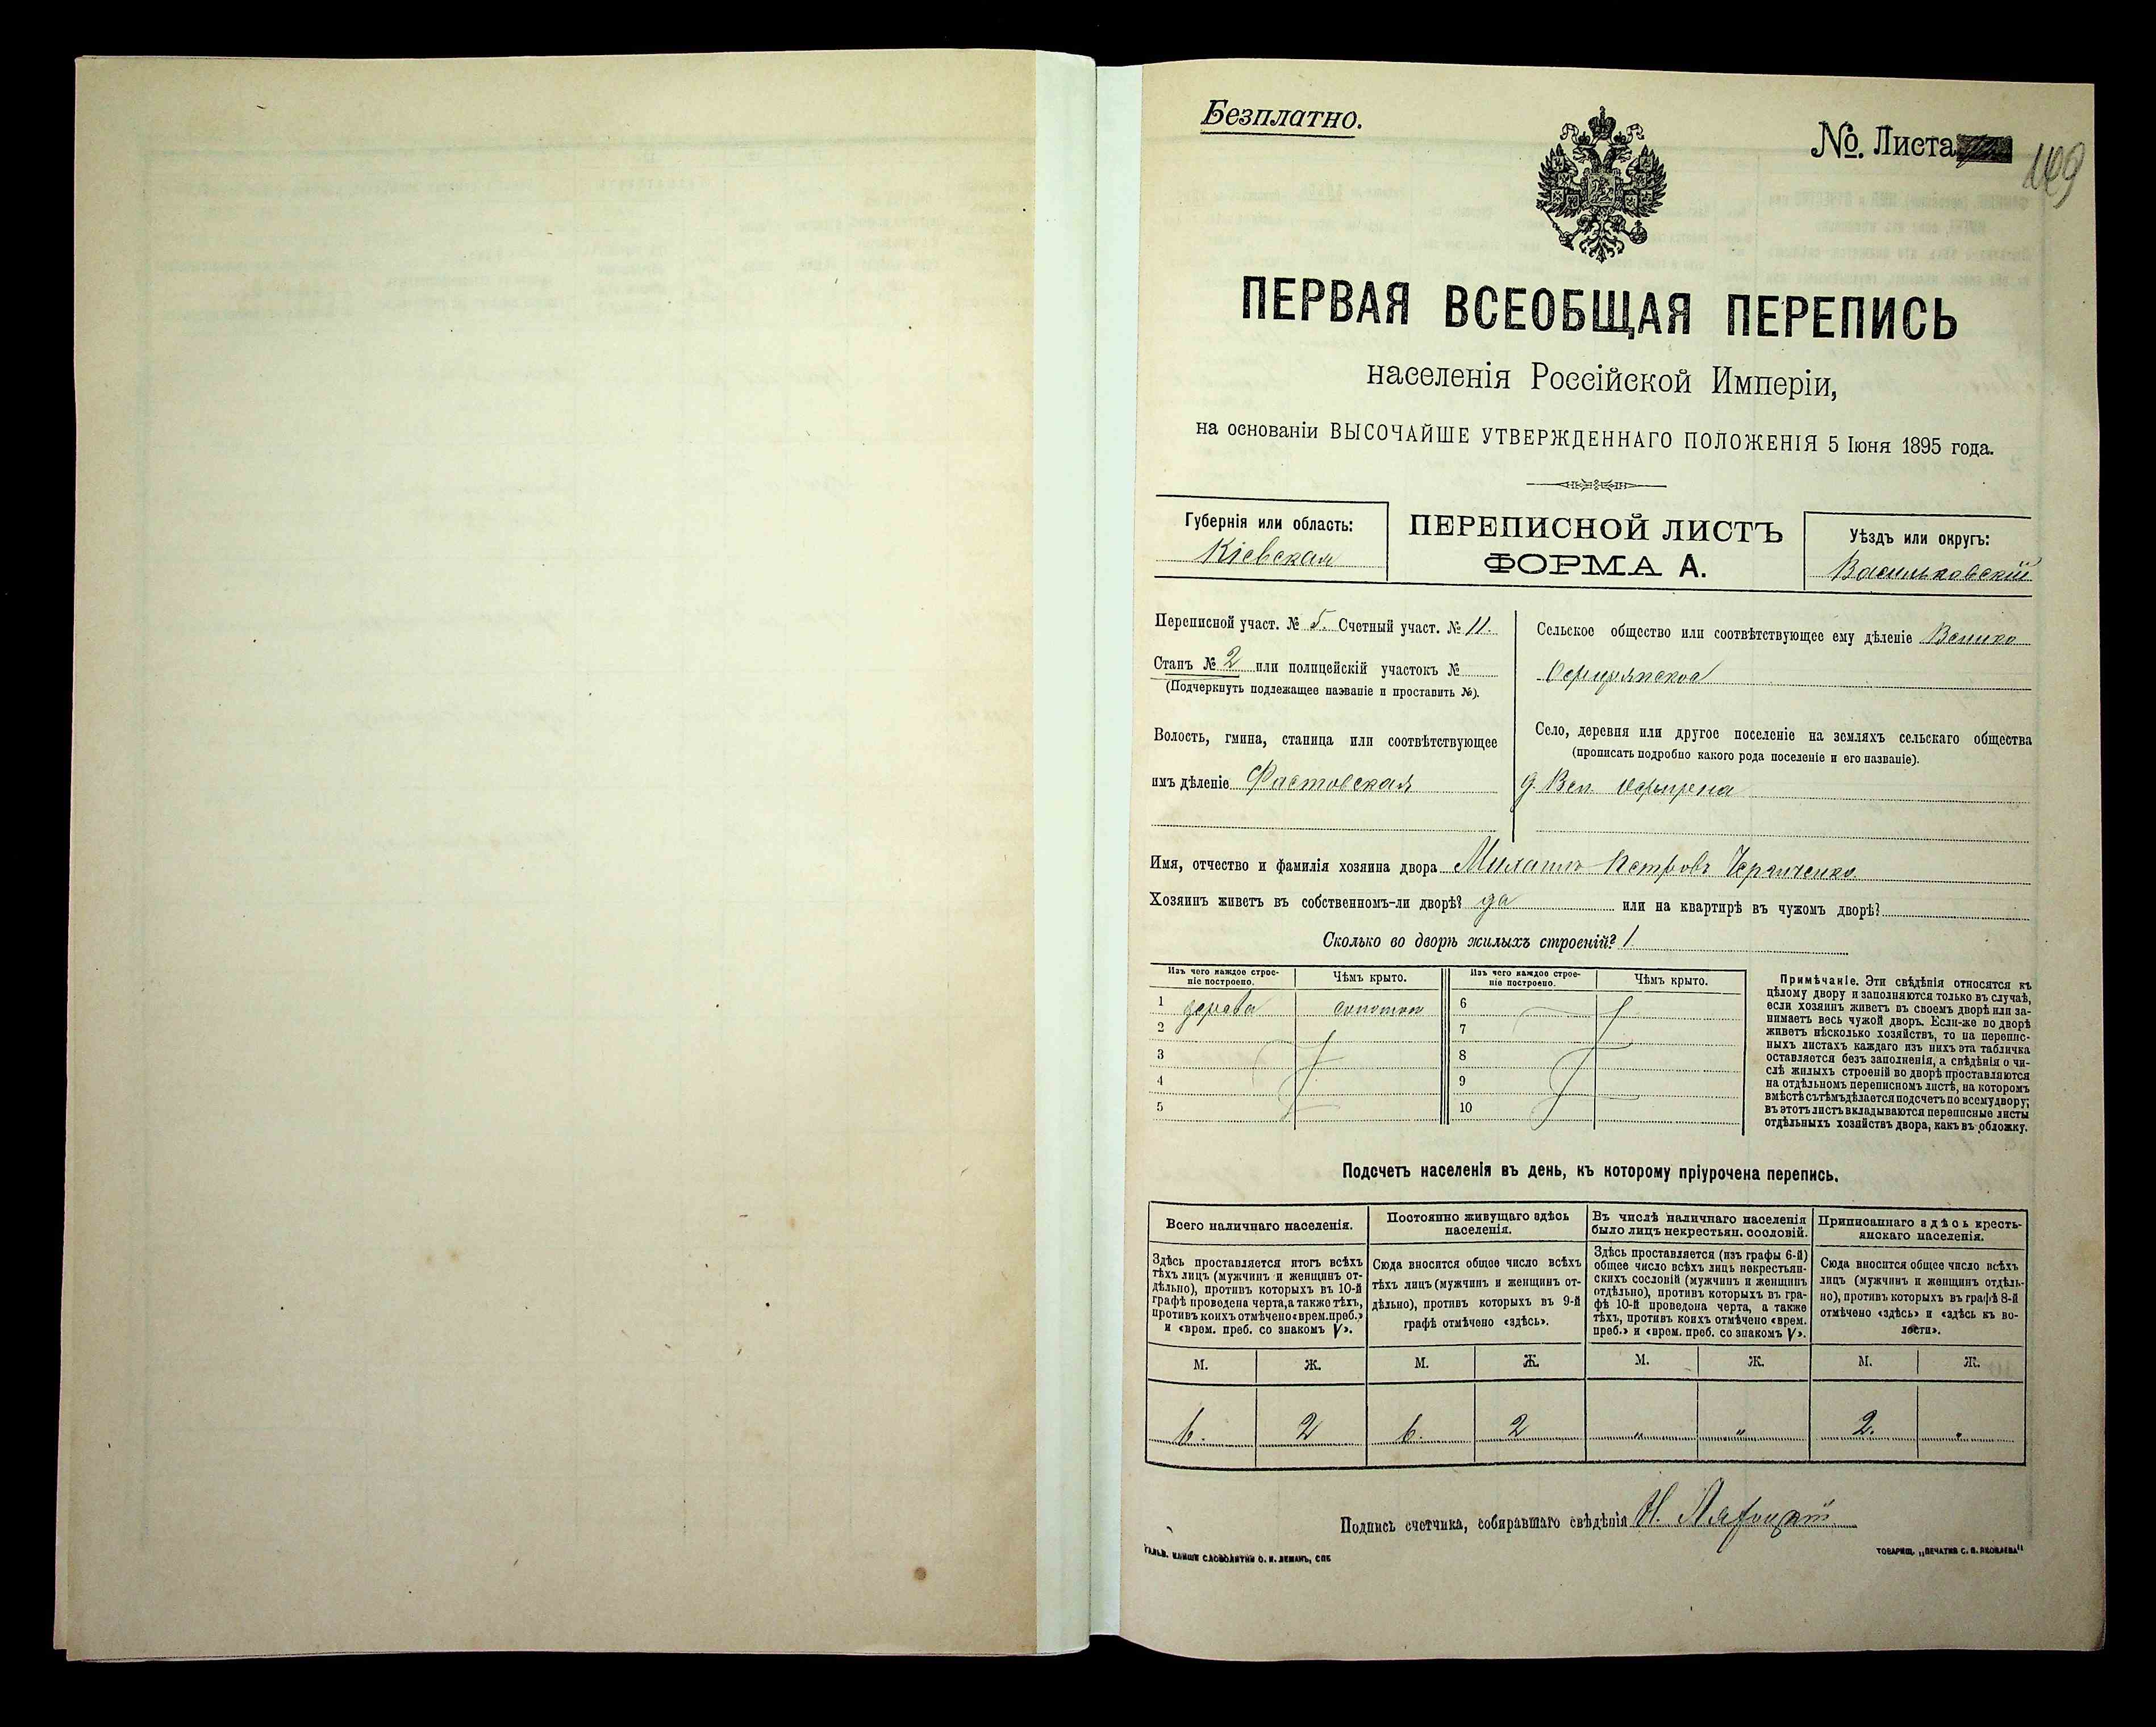 Безплатно.
№. Листа
149
ПЕРВАЯ ВСЕОБЩАЯ ПЕРЕПИСЬ
населенія Россійской Имперіи,
на основаніи ВЫСОЧАЙШЕ УТВЕРЖДЕННАГО ПОЛОЖЕНІЯ 5 Іюня 1895 года.
Губернія или область:
Кіевская
ПЕРЕПИСНОЙ ЛИСТЪ
ФОРМА А.
Уѣздъ или округъ:
Васильковскій
Переписной участ. № 5. Счетный участ. № 11.
Станъ № 2 или полицейскій участокъ №
(Подчеркнуть подлежащее названіе и проставить №).
Волость, гмина, станица или соотвѣтствующее
имъ дѣленіе Фастовская
Сельское общество или соотвѣтствующее ему дѣленіе Велико
Село, деревня или другое поселеніе на земляхъ сельскаго общества
(прописать подробно какого рода поселеніе и его названіе).
д. Вел.
Имя, отчество и фамилія хозяина двора Михаилъ Петровъ
Хозяинъ живетъ въ собственномъ-ли дворѣ? да или на квартирѣ въ чужомъ дворѣ?
Сколько во дворѣ жилыхъ строеній? 1
Изъ чего каждое строе-
ніе построено.
Чѣмъ крыто.
Изъ чего каждое строе-
ніе построено.
Чѣмъ крыто.
1 дерева соломой
2
3
4
5
6
7
8
9
10
Примѣчаніе. Эти свѣдѣнія относятся къ
цѣлому двору и заполняются только въ случаѣ,
если хозяинъ живетъ въ своемъ дворѣ или за-
нимаетъ весь чужой дворъ. Если-же во дворѣ
живетъ нѣсколько хозяйствъ, то на перепис-
ныхъ листахъ каждаго изъ нихъ эта табличка
оставляется безъ заполненія, а свѣдѣнія о чи-
слѣ жилыхъ строеній во дворѣ проставляются
на отдѣльномъ переписномъ листѣ, на которомъ
вмѣстѣ съ тѣмъ дѣлается подсчетъ по всему двору;
въ этотъ листъ вкладываются переписные листы
отдѣльныхъ хозяйствъ двора, какъ въ обложку.
Подсчетъ населенія въ день, къ которому пріурочена перепись.
Всего наличнаго населенія.
Здѣсь проставляется итогъ всѣхъ
тѣхъ лицъ (мужчинъ и женщинъ от-
дѣльно), противъ которыхъ въ 10-й
графѣ проведена черта, а также тѣхъ,
противъ коихъ отмѣчено «врем. преб.»
и «врем. преб. со знакомъ V».
Постоянно живущаго здѣсь
населенія.
Сюда вносится общее число всѣхъ
тѣхъ лицъ (мужчинъ и женщинъ от-
дѣльно), противъ которыхъ въ 9-й
графѣ отмѣчено «здѣсь».
Въ числѣ наличнаго населенія
было лицъ некрестьян. сословій.
Здѣсь проставляется (изъ графы 6-й)
общее число всѣхъ лицъ некрестьян-
скихъ сословій (мужчинъ и женщинъ
отдѣльно), противъ которыхъ въ гра-
фѣ 10-й проведена черта, а также
тѣхъ, противъ коихъ отмѣчено «врем.
преб.» и «врем. преб. со знакомъ V».
Приписаннаго здѣсь кресть-
янскаго населенія.
Сюда вносится общее число всѣхъ
лицъ (мужчинъ и женщинъ отдѣль-
но), противъ которыхъ въ графѣ 8-й
отмѣчено «здѣсь» и «здѣсь къ во-
лости».
М. Ж. М. Ж. М. Ж. М. Ж.
6. 2 6. 2 " " 2. "
Подпись счетчика, собиравшаго свѣдѣнія Н.
ГАЛЬВ. КЛИШЕ СЛОВОЛИТНИ О. И. ЛЕМАНЪ, СПБ
ТОВАРИЩ. „ПЕЧАТНЯ С. П. ЯКОВЛЕВА"